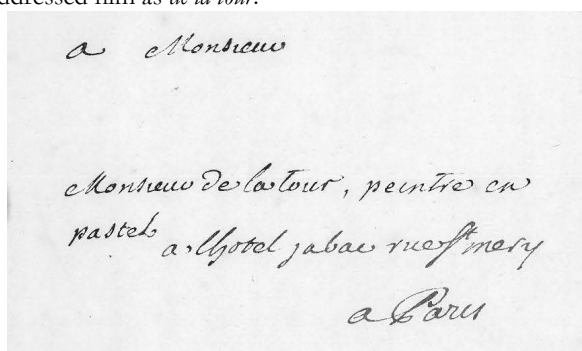 ddressed him as de la tour.
a Monsieur
Monsieur de la tour, peintre en
pastel
a lhotel jabac rue St mery
a Paris